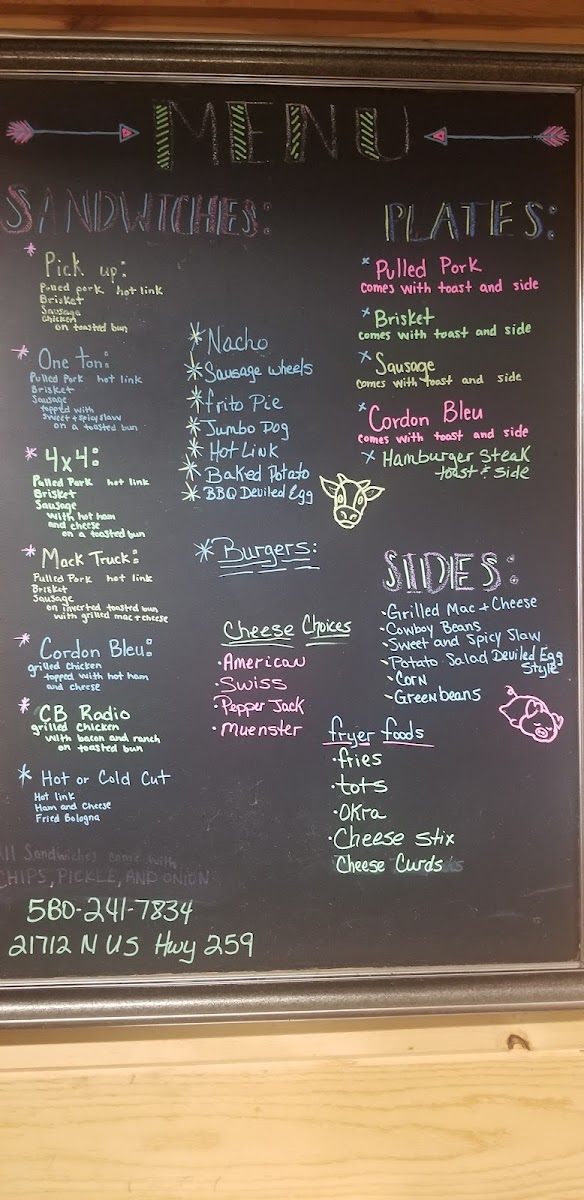 MENU
SANDWICHES:
* Pick up:
Pulled pork hot link
Brisket
Sausage
Chicken
on toasted bun
* One ton:
Pulled Pork hot link
Brisket
Sausage
topped with
sweet + spicy slaw
on a toasted bun
* 4x4:
Pulled Pork hot link
Brisket
Sausage
with hot ham
and cheese
on a toasted bun
* Mack Truck:
Pulled Pork hot link
Brisket
Sausage
on inverted toasted bun
with grilled mac+cheese
* Cordon Bleu:
grilled Chicken
topped with hot ham
and cheese
* CB Radio
grilled Chicken
with bacon and ranch
on toasted bun
* Hot or Cold Cut
Hot link
Ham and Cheese
Fried Bologna
All Sandwiches come with
CHIPS, PICKLE, AND ONION
580-241-7834
21712 N US Hwy 259
* Nacho
* Sausage wheels
* Frito Pie
* Jumbo Dog
* Hot Link
* Baked Potato
* BBQ Deviled Egg
* Burgers:
Cheese Choices
· American
· Swiss
· Pepper Jack
· Muenster
PLATES:
* Pulled Pork
comes with toast and side
* Brisket
comes with toast and side
* Sausage
comes with toast and side
* Cordon Bleu
comes with toast and side
* Hamburger Steak
toast & side
SIDES:
- Grilled Mac + Cheese
- Cowboy Beans
- Sweet and Spicy Slaw
- Potato Salad Deviled Egg
Style
- Corn
- Green beans
fryer foods
· fries
· tots
· Okra
· Cheese Stix
Cheese Curds